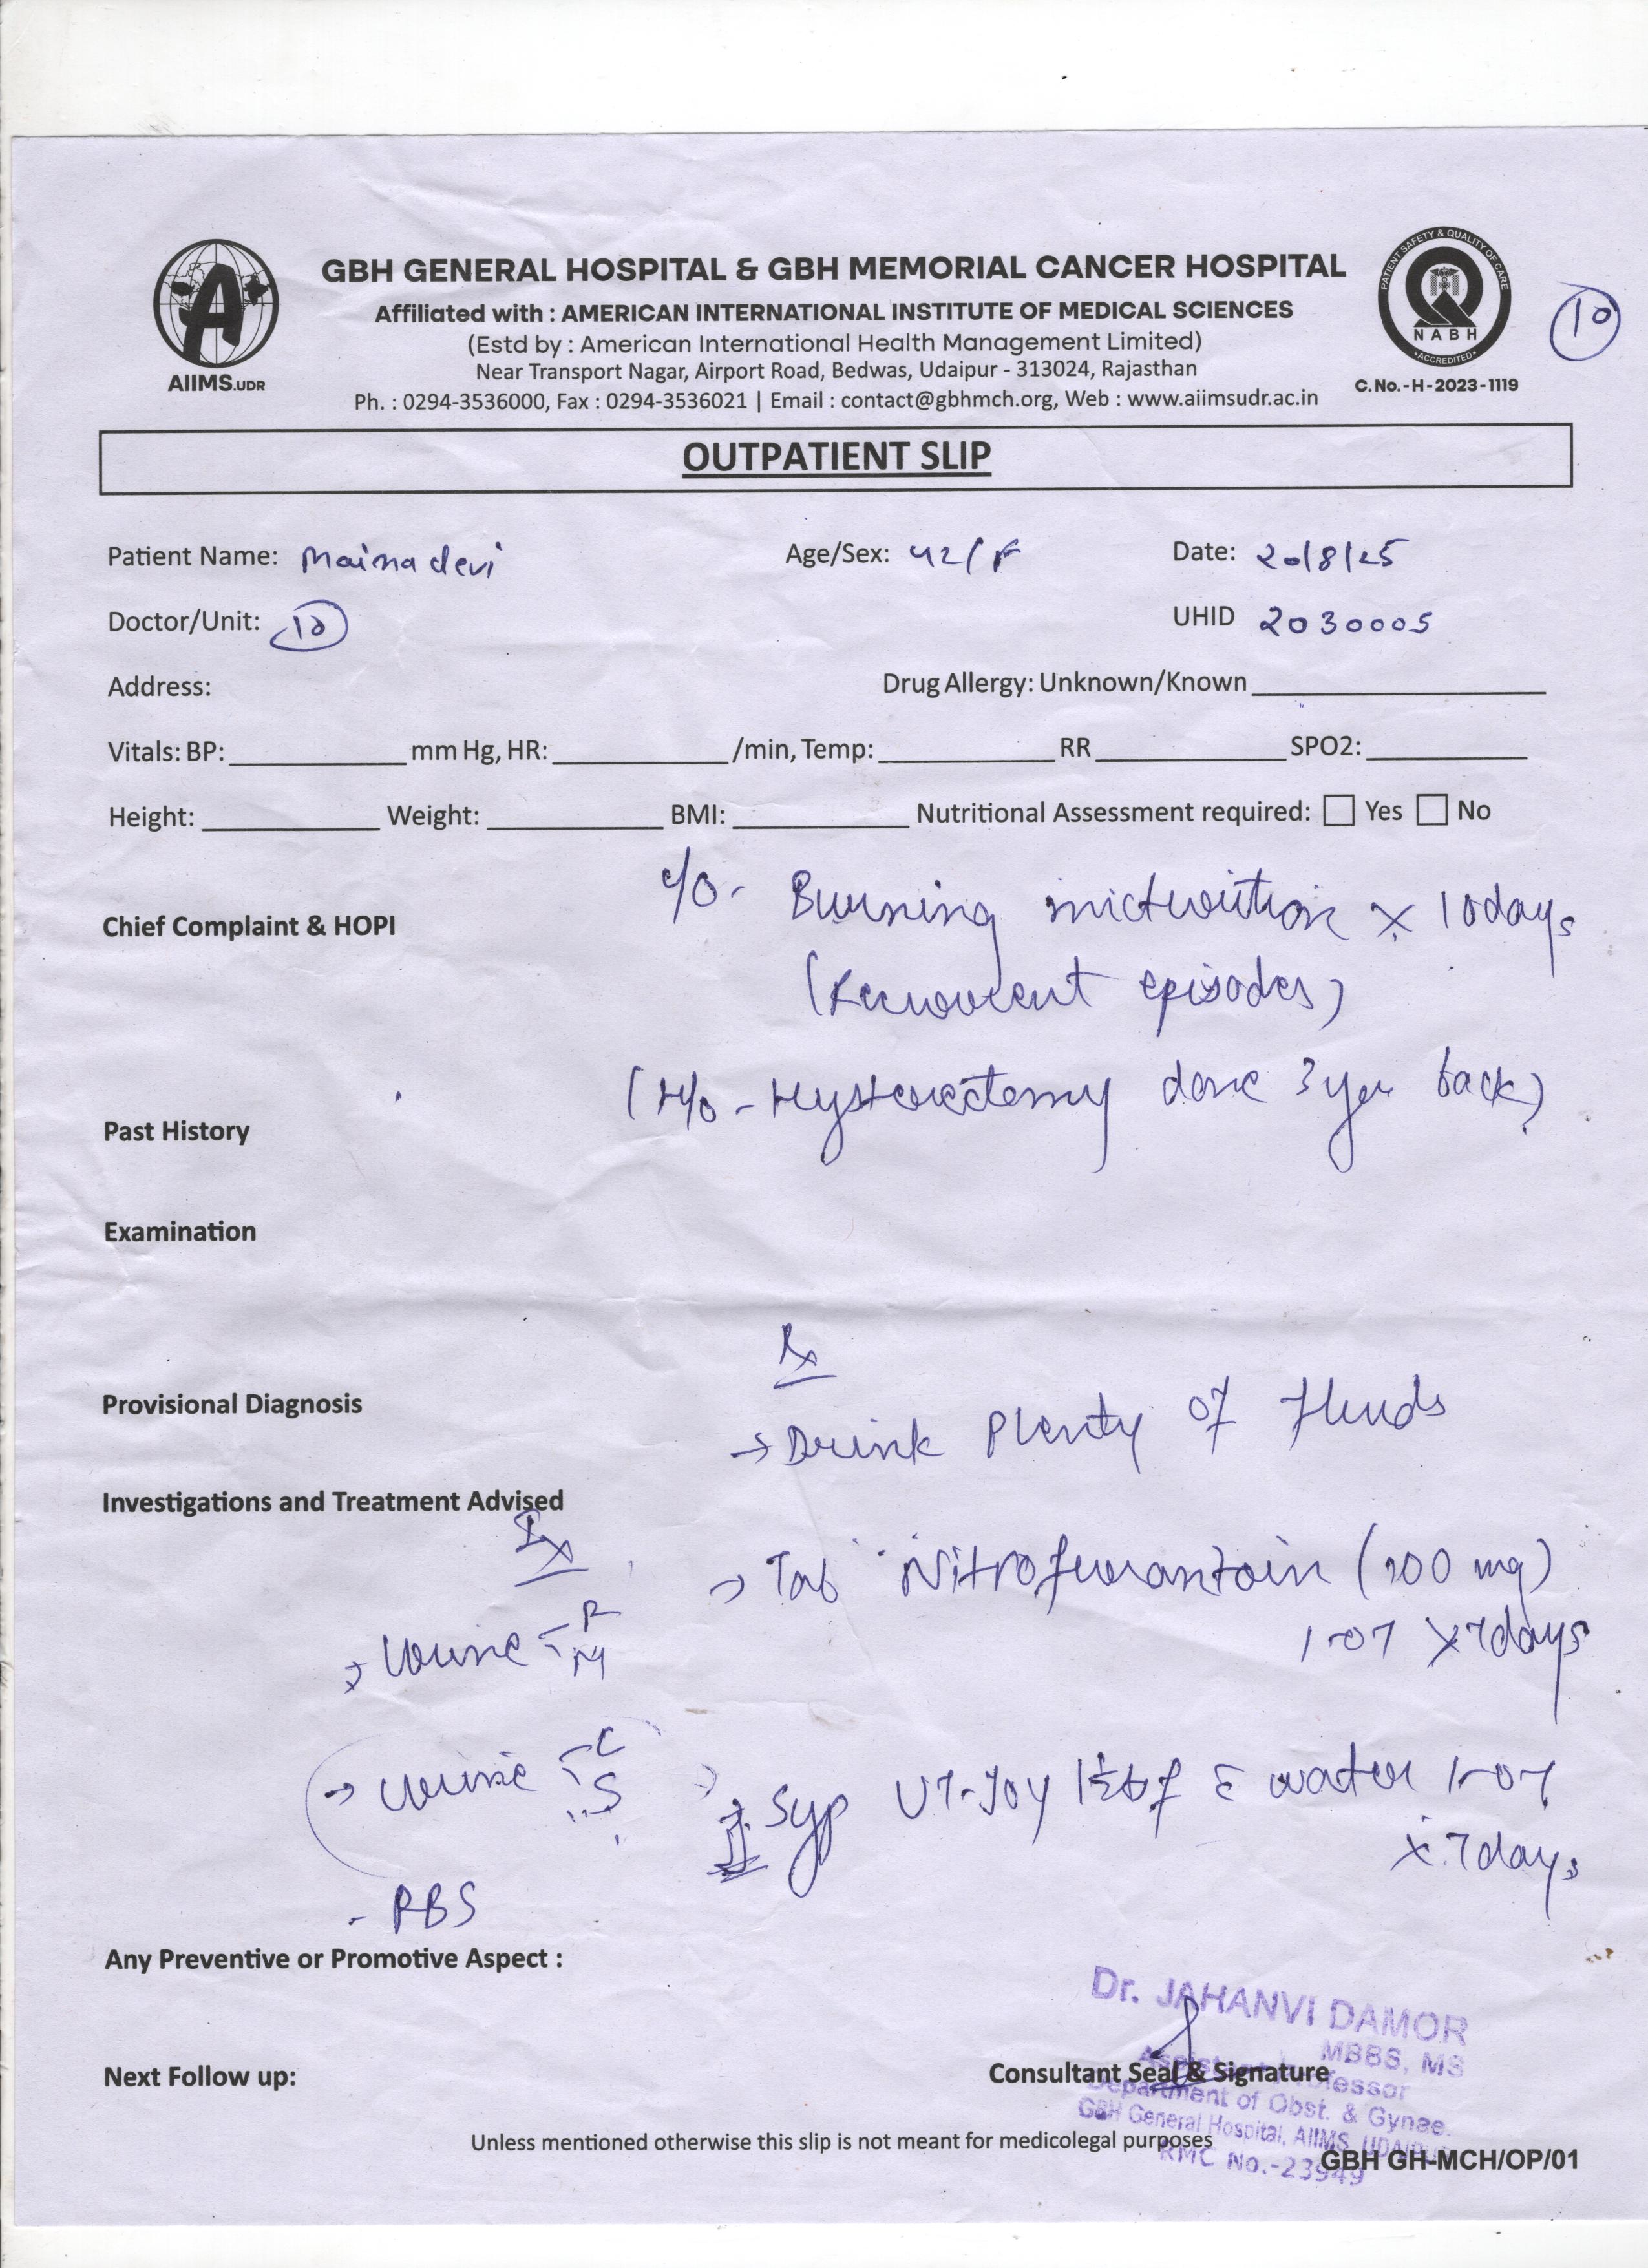 PATIENT SAFETY & QUALITY OF CARE
NABH
ACCREDITED
C.No.-H-2023-1119
10
A
AIIMS.UDR
GBH GENERAL HOSPITAL & GBH MEMORIAL CANCER HOSPITAL
Affiliated with : AMERICAN INTERNATIONAL INSTITUTE OF MEDICAL SCIENCES
(Estd by : American International Health Management Limited)
Near Transport Nagar, Airport Road, Bedwas, Udaipur - 313024, Rajasthan
Ph. : 0294-3536000, Fax : 0294-3536021 | Email : contact@gbhmch.org, Web : www.aiimsudr.ac.in
OUTPATIENT SLIP
Patient Name: Maina devi Age/Sex: 42/F Date: 20/8/25
Doctor/Unit: 10 UHID 2030005
Address: Drug Allergy: Unknown/Known
Vitals: BP: mm Hg, HR: /min, Temp: RR SPO2:
Height: Weight: BMI: Nutritional Assessment required: Yes No
c/o- Burning micturition x 10days
Chief Complaint & HOPI
(Recurrent episodes)
(H/o - Hysterectomy done 3 year back)
Past History
Examination
Rx
Provisional Diagnosis
→ Drink Plenty of fluids
Investigations and Treatment Advised
Ix
→ Tab Nitrofurantoin (100 mg)
1-0-1 x 7days
→ Urine - R
M
→ Urine - C
S
→ Syp UT-Joy 1½tbf c̄ water 1-0-1
x 7days
- RBS
Any Preventive or Promotive Aspect :
Dr. JAHANVI DAMOR
MBBS, MS
Next Follow up: Consultant Seal & Signature
Assistant Professor
Department of Obst. & Gynae.
GBH General Hospital, AIIMS, UDAIPUR
Unless mentioned otherwise this slip is not meant for medicolegal purposes
RMC No.-23949
GBH GH-MCH/OP/01